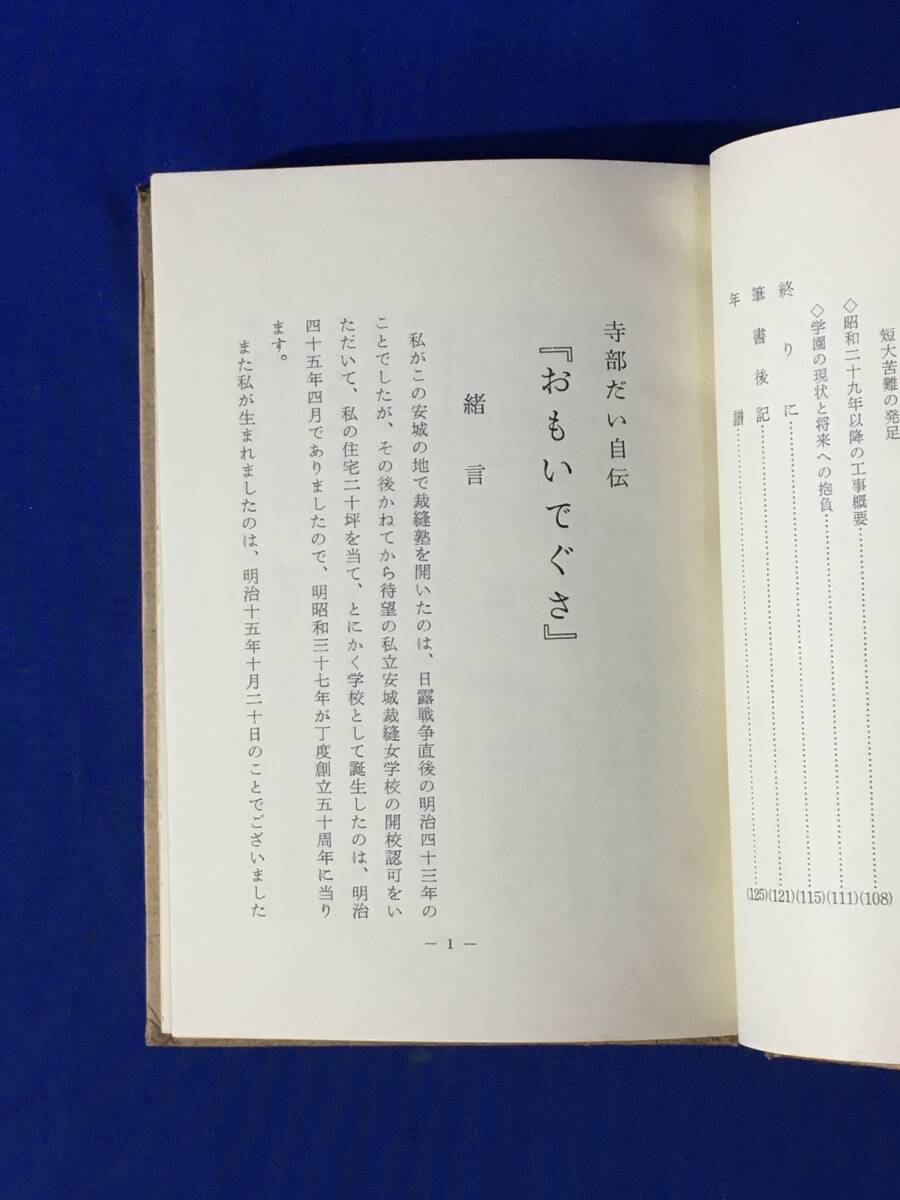 短大苦難の発足
(108)
◇昭和二十九年以降の工事概要……(111)
◇学園の現状と将来への抱負……(115)
終りに……(121)
筆書後記……(125)
年譜……
寺部だい自伝
『おもいでぐさ』
緒言
私がこの安城の地で裁縫塾を開いたのは、日露戦争直後の明治四十三年の
ことでしたが、その後かねてから待望の私立安城裁縫女学校の開校認可をい
ただいて、私の住宅二十坪を当て、とにかく学校として誕生したのは、明治
四十五年四月でありましたので、明昭和三十七年が丁度創立五十周年に当り
ます。
また私が生まれましたのは、明治十五年十月二十日のことでございました
— 1 —